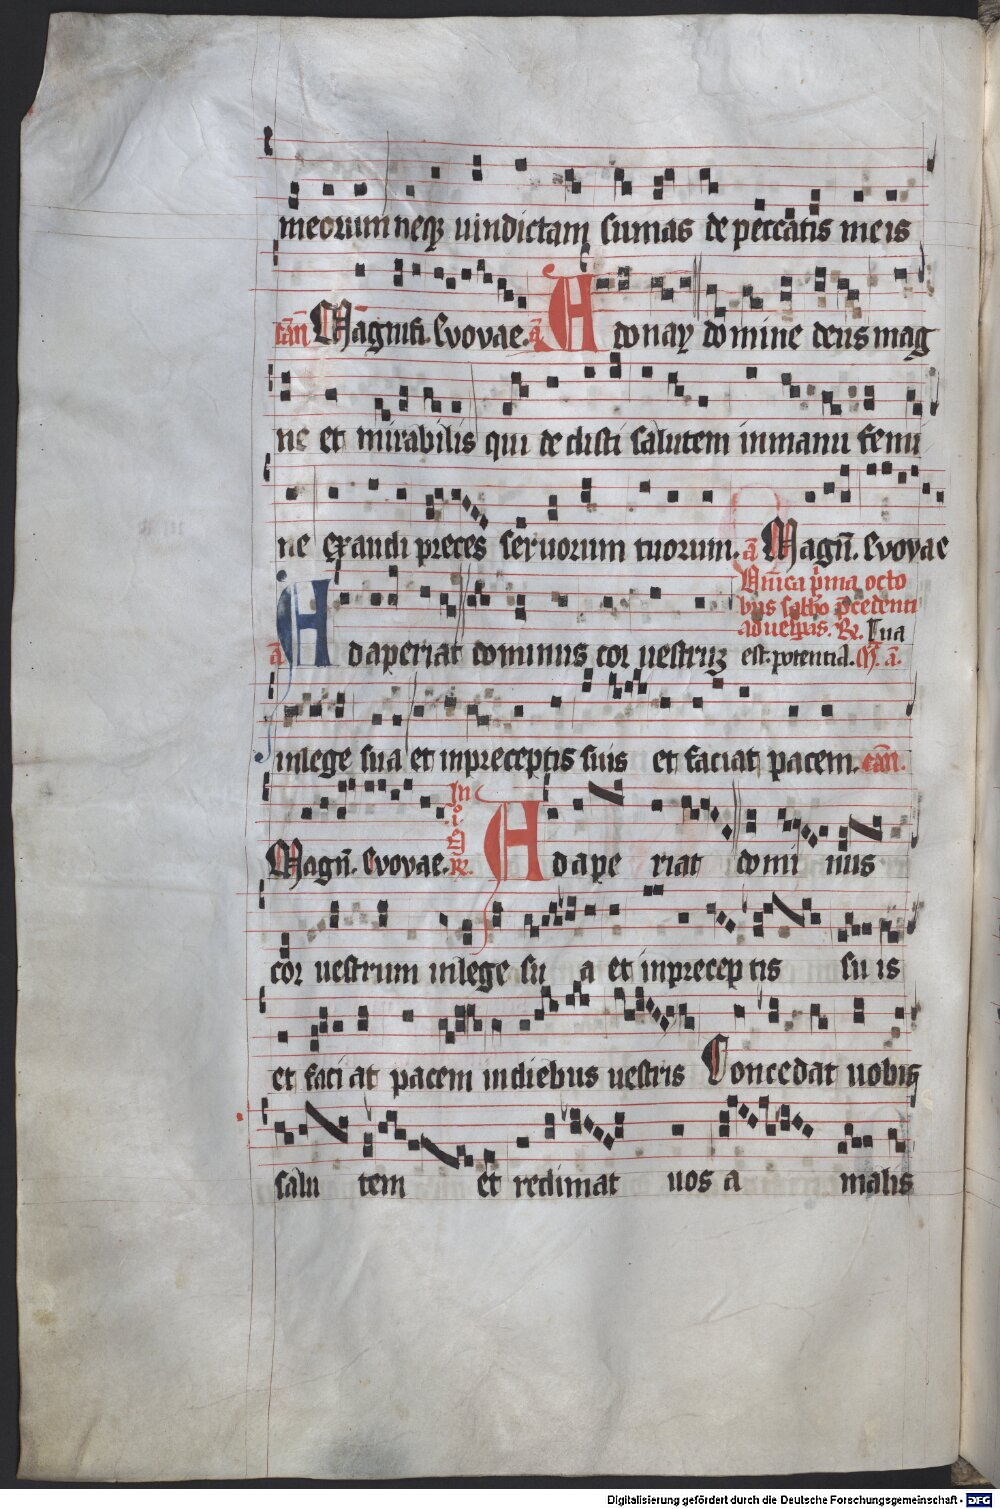 meorum neq uindictam sumas de peccatis meis
can Magnifi. Evovae. a Adonay domine deus mag
ne et mirabilis qui dedisti salutem in manu femi
ne exaudi preces seruorum tuorum. a Magn. Evovae
Adaperiat dominus cor uestrum
octo
est potentia.
in lege sua et in preceptis suis et faciat pacem. can.
Magn. Evovae. Adaperiat dominus
cor uestrum in lege sua et in preceptis suis
et faciat pacem in diebus uestris Concedat uobis
salutem et redimat uos a malis
Digitalisierung gefördert durch die Deutsche Forschungsgemeinschaft - DFG